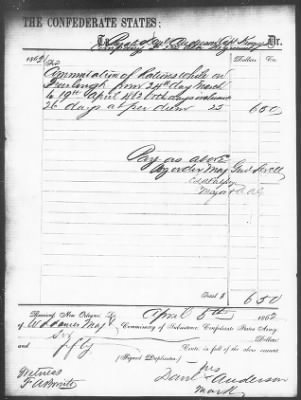 THE CONFEDERATE STATES;
Dr.
1862 Dollars Cts
Commutation of Rations while on
Furlough from 24th day March
to 19th April 1862 both days inclusive
26 days at per diem 25 6 50
Pay as above
By order Maj Genl Lovell
Major &
Total $ 6 50
Received New Orleans La April 5th 1862
of W Maj Commissary of Subsistence, Confederate States Army
Six Dollars
and fifty Cents in full of the above account
(Signed Duplicates.)
Witness his
Danl X Anderson
mark